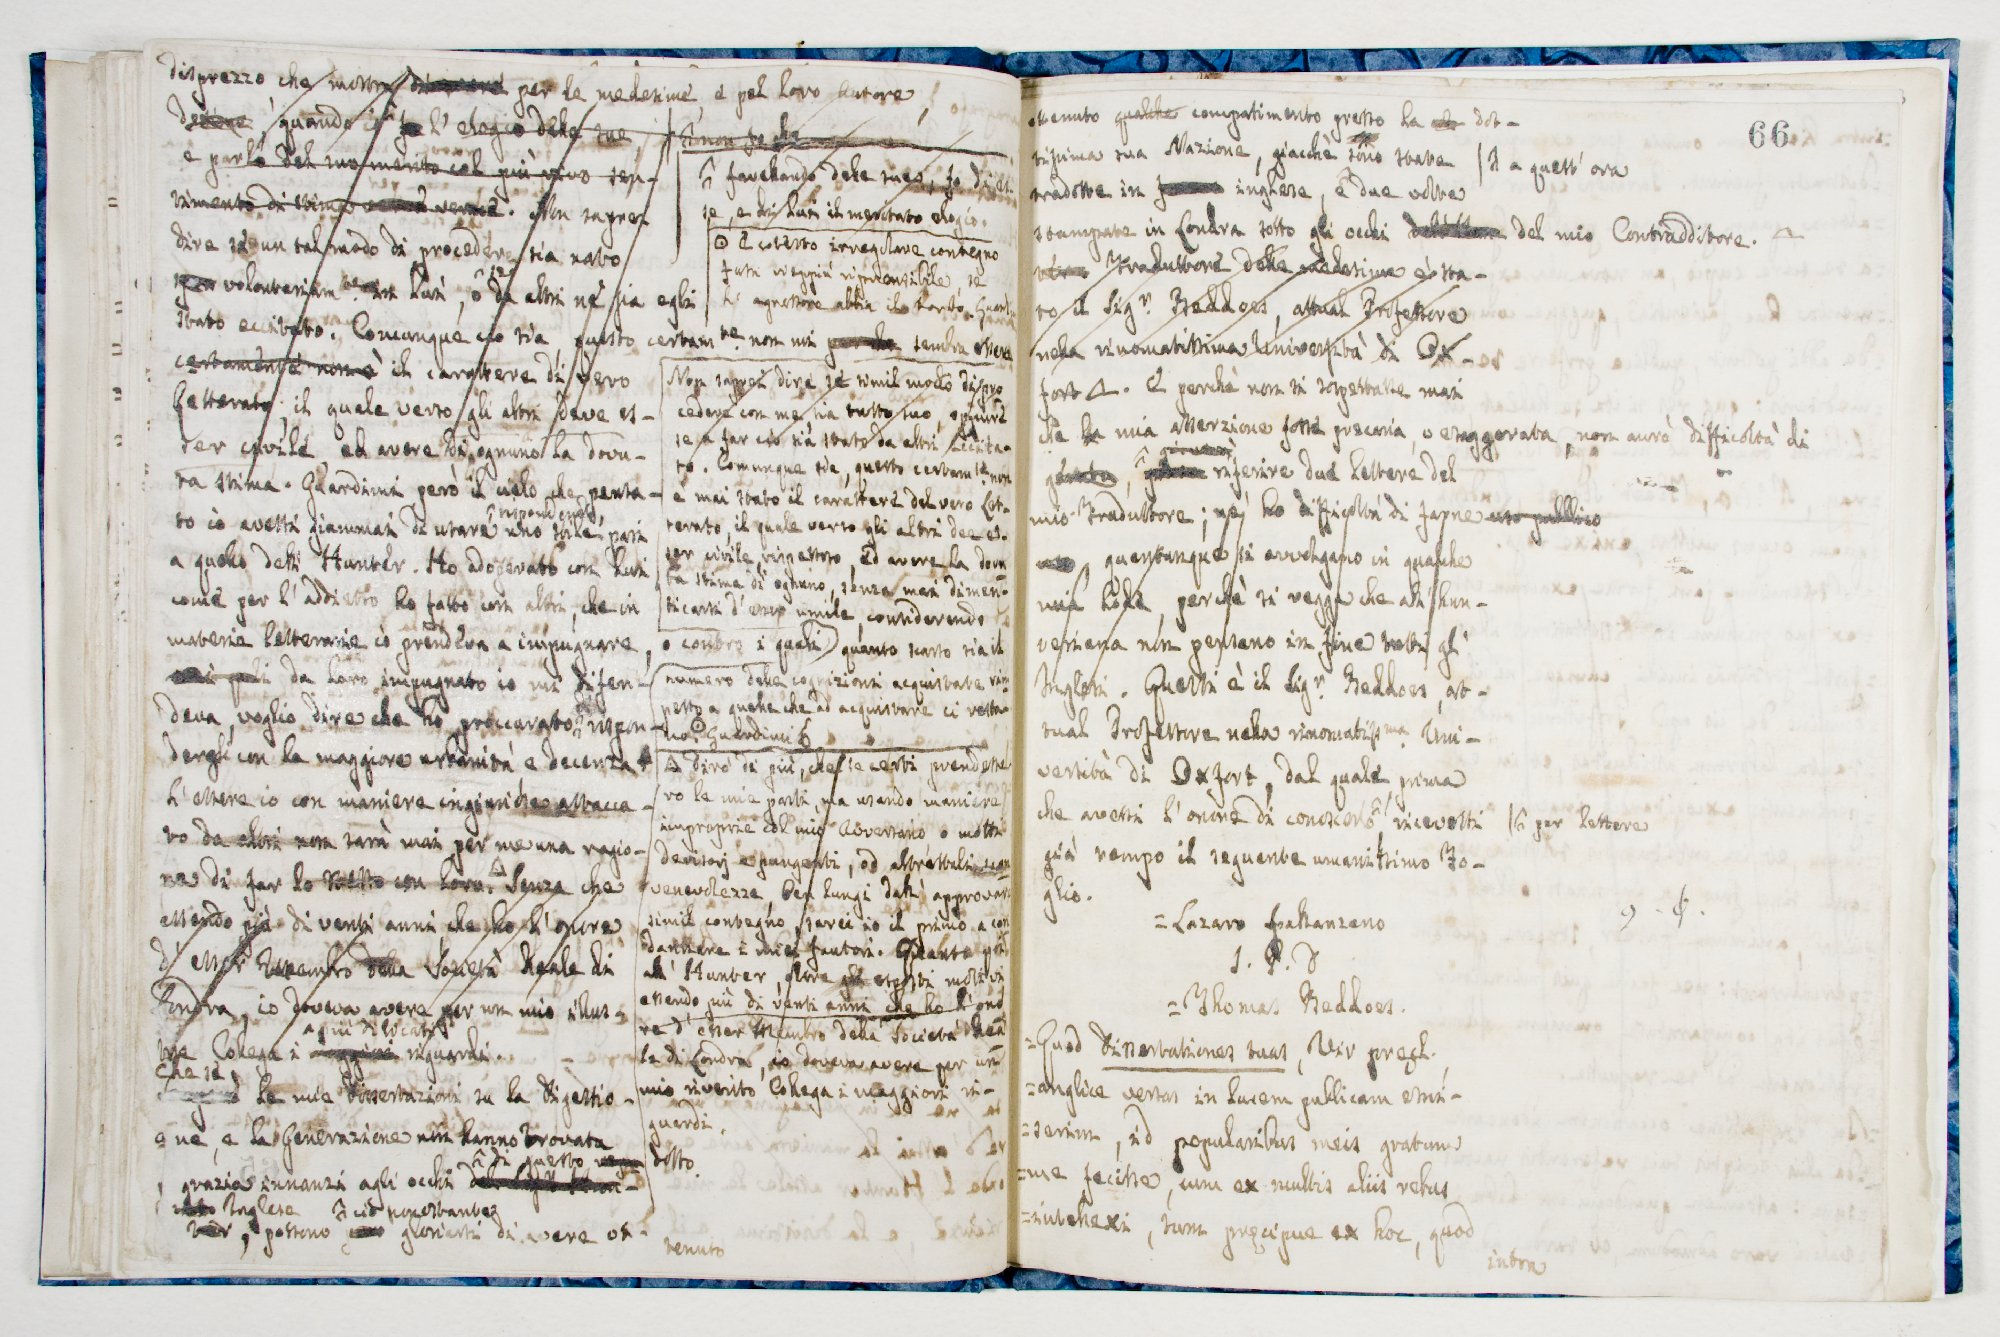 disprezzo che mostra per le medesime, e pel loro Autore,
quando l'elogio delle sue,
e parla del suo merito col più vivo sen-
timento di stima. Non saprei
dire se un tal modo di procedere sia nato
volontariamte in lui, o da altri ne sia egli
stato eccitato. Comunque ciò sia questo certamte non mi sembra essere
certamente non è il carattere di vero
Letterato, il quale verso gli altri deve es-
ser civile ed avere di ognuno la dovu-
ta stima. Guardimi però il cielo che pensa-
to io avessi giammai di usare uno stile pari
a quello dell' Hunter. Ho adoperato con lui
come per l'addietro ho fatto con altri, che in
materia letteraria io prendeva a impugnare,
da loro impugnato io mi difen-
deva, voglio dire che ho proccurato rispon-
dergli con la maggiore urbanità, e decenza
L'essere io con maniere ingiuriose attacca-
to da altri non sarà mai per me una ragio-
ne di far lo stesso con loro. Senza che
essendo più di venti anni che ho l'onore
d'esser Membro della Società Reale di
Londra, io doveva avere per un mio illus-
tre Collega i riguardi.
Che se
le mie Dissertazioni su la Digestio-
ne, e la Generazione non hanno trovata
di questo
grazia innanzi agli occhi
Inglese ciò nonostante
possono gloriarsi di avere ot-
tenuto
favellando delle sue,
se, e di lui il meritato elogio.
E cotesto irregolare contegno
sarà vieppiù riprensibile, se
l'aggressore abbia il torto.
Non saprei dire se simil modo di pro
cedere con me sia tutto suo, oppure
se a far ciò sia stato da altri eccita-
to. Comunque sia, questo certamte non
è mai stato il carattere del vero Let-
terato, il quale verso gli altri dee es-
ser civile, rispettoso, ed avere la dovu
ta stima di ognuno, senza mai dimen-
ticarsi d'esser umile, considerando
o contro i quali quanto scarso sia il
numero delle cognizioni acquistate rim
petto a quelle che ad acquistare ci resta-
no. Guardimi
dirò di più, che se certi prendesse
ro le mie parti, ma usando maniere
improprie col mio Avversario o motti
derisorj e pungenti, od altrettali
venevolezze, ben lungi dall' approvar
simil contegno, sarei io il primo a con
dannare i miei fautori. Quanto poi
all' Hunter, oltre gli esposti motivi
essendo più di venti anni che ho l'ono
re d'esser Membro della Società Rea
le di Londra, io doveva avere per un
mio riverito Collega i maggiori ri-
guardi.
dotto
66
ottenuto qualche compatimento presso la dot-
tissima sua Nazione, giacchè sono state a quest' ora
tradotte in inglese, e due volte
stampate in Londra sotto gli occhi del mio Contradditore.
Traduttore delle medesime è sta-
to il Sigr. Beddoes, attual Professore
nella rinomatissima Università di Ox-
fort. E perchè non si sospettasse mai
che la mia asserzione fosse precaria, o esaggerata, non avrò difficoltà di
riferire due lettere del
mio Traduttore; nè ho difficoltà di farne uso pubblico
quantunque si avvolgano in qualche
mia lode, perchè si vegga che all' hun-
teriana non pensano in fine tutti gl'
Inglesi. Questi è il Sigr. Beddoes, at-
tual Professore nella rinomatissma Uni-
versità di Oxfort, dal quale prima
che avessi l'onore di conoscerlo, ricevetti per lettere
già tempo il seguente umanissimo Fo-
glio.
= Lazaro Spallanzano
S. P. D
= Thomas Beddoes.
= Quod Dissertationes tuas, Vir pregl.,
= anglice versas in lucem publicam emi-
= serim, id popularibus meis gratum
= me fecisse, cum ex multis aliis rebus
= intellexi, tum precipue ex hoc, quod
intra